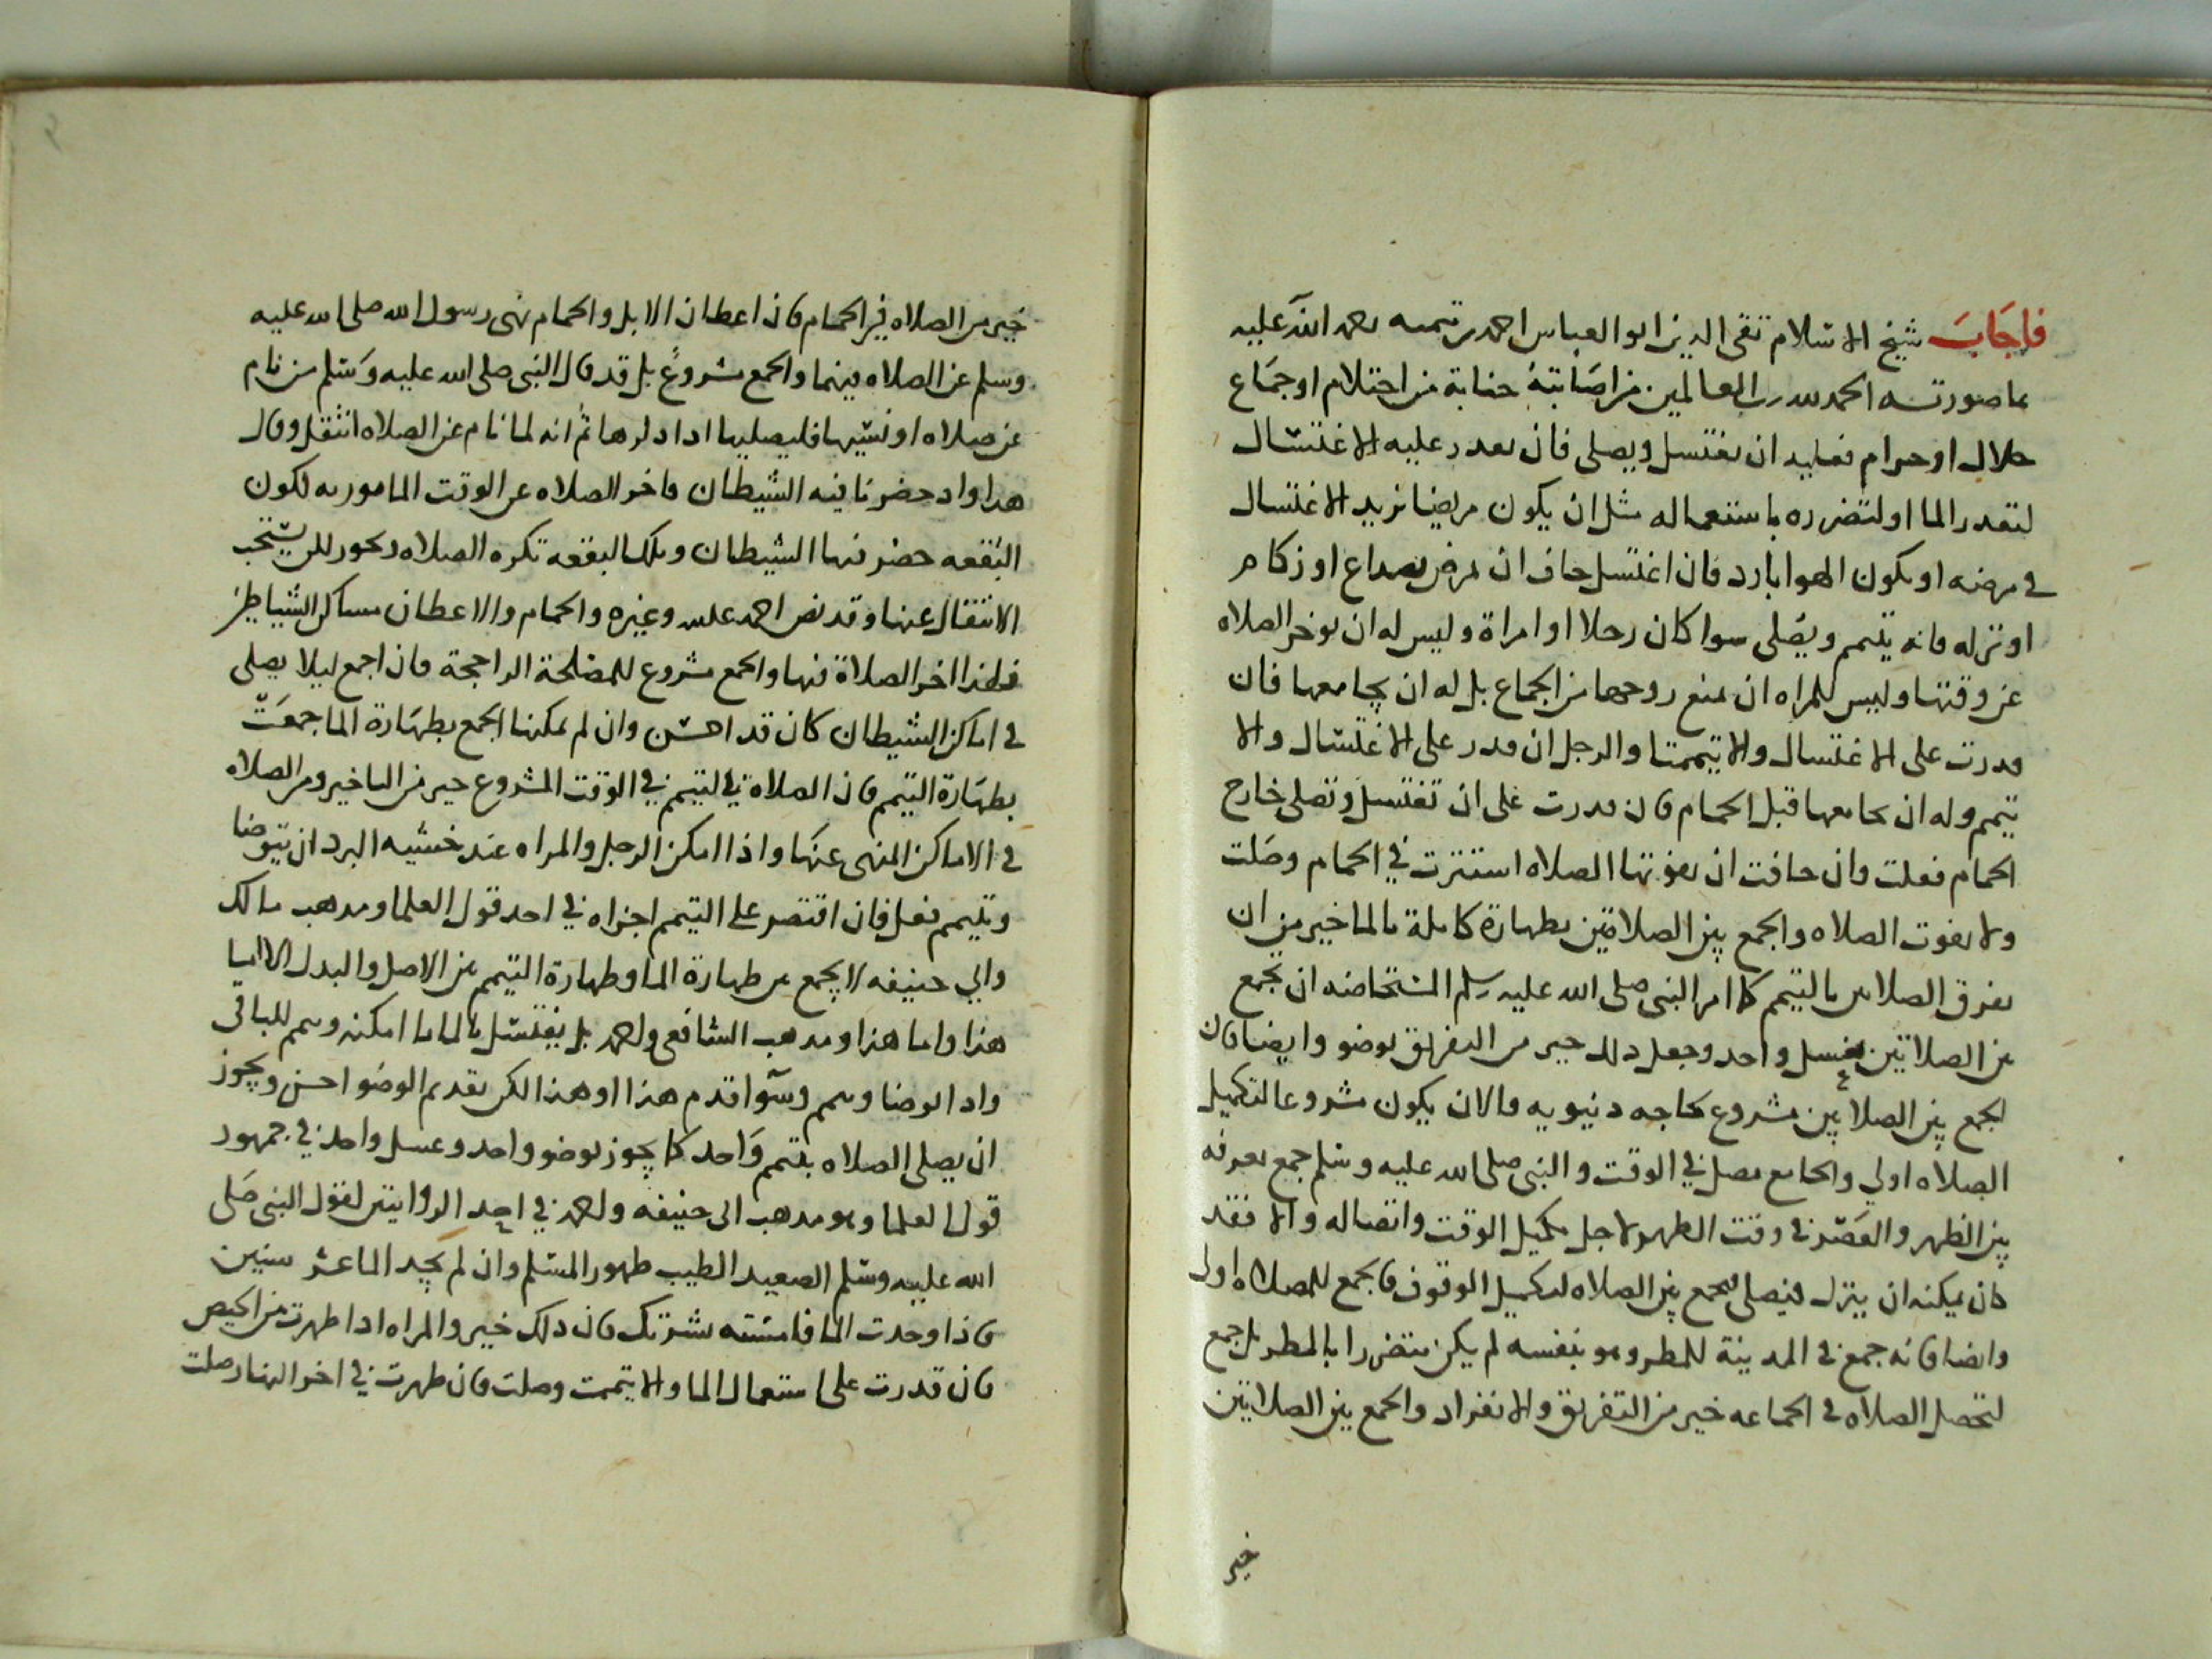 فاجاب شيخ الاسلام تقى الدين ابو العباس احمد بن تيميه رحمة الله عليه
بما صورته الحمد لله رب العالمين من اصابته جنابة من احتلام او جماع
حلال او حرام فعليه ان يغتسل ويصلى فان تعذر عليه الاغتسال
لتعذر الما او لتضرره باستعماله مثل ان يكون مريضا يزيد الاغتسال
في مرضه او يكون الهوا بارد فان اغتسل خاف ان يمرض بصداع او زكام
او نزله فانه يتيمم ويصلى سوا كان رجلا او امراة وليس له ان يوخر الصلاه
عن وقتها وليس للمراه ان تمنع زوجها من الجماع بل له ان يجامعها فان
قدرت على الاغتسال والا تيممت والرجل ان قدر على الاغتسال والا
تيمم وله ان يجامعها قبل الحمام فان قدرت على ان تغتسل وتصلى خارج
الحمام فعلت وان خافت ان يفوتها الصلاه استترت في الحمام وصلت
ولا يفوت الصلاه والجمع بين الصلاتين بطهارة كاملة بالما خير من ان
يفرق الصلاتين بالتيمم كما امر النبى صلى الله عليه وسلم المستحاضه ان تجمع
بين الصلاتين بغسل واحد وجعل ذلك خير من التفريق بوضو وايضا فان
الجمع بين الصلاتين مشروع لحاجه دنيويه فالان يكون مشروعا لتكميل
الصلاه اولي والجامع مصل في الوقت والنبى صلى الله عليه وسلم جمع بعرفه
بين الظهر والعصر في وقت الظهر لاجل تكميل الوقت واتصاله والا فقد
كان يمكنه ان ينزل فيصلى فجمع بين الصلاه لتكميل الوقوف فالجمع للصلاه اولى
وايضا فانه جمع في المدينة للمطر وهو بنفسه لم يكن يتضررا بالمطر بل جمع
لتحصل الصلاه في الجماعه خير من التفريق والانفراد والجمع بين الصلاتين
خير
خير من الصلاه في الحمام فان اعطان الابل والحمام نهى رسول الله صلى الله عليه
وسلم عن الصلاه فيهما والجمع مشروع بل قد قال النبى صلى الله عليه وسلم من نام
عن صلاه او نسيها فليصليها اذا ذكرها ثم انه لما نام عن الصلاه انتقل وقال
هذا واد حضرنا فيه الشيطان فاخر الصلاه عن الوقت المامور به لكون
البقعه حضر فيها الشيطان وتلك البقعه تكره الصلاه وتجوز لكن يستحب
الانتقال عنها وقد نص احمد على وغيره والحمام والاعطان مساكن الشياطين
فلهذا اخر الصلاة فيها والجمع مشروع للمصلحة الراجحة فان اجمع ليلا يصلى
في اماكن الشيطان كان قد احسن وان لم يمكنها الجمع بطهارة الما جمعت
بطهارة التيمم فان الصلاة في التيمم في الوقت المشروع خير من التاخير ومن الصلاه
في الاماكن المنهى عنها واذا امكن الرجل والمراه عند خشيه البرد ان يتوضا
وتيمم فعل فان اقتصر على التيمم اجزاه في احد قول العلما ومذهب مالك
وابي حنيفه لا يجمع بين طهارة الما وطهارة التيمم بين الاصل والبدل الا اما
هذا واما هذا ومذهب الشافعى واحمد بل يغتسل بالما ما امكنه وتيمم للباقى
واذا توضا وتيمم وسوآ قدم هذا او هذا لكن تقديم الوضو احسن ويجوز
ان يصلى الصلاه بتيمم واحد كما يجوز بوضو واحد وغسل واحد في جمهور
قول العلما وهو مذهب ابى حنيفه واحمد في احد الروايتين لقول النبى صلى
الله عليه وسلم الصعيد الطيب طهور المسلم وان لم يجد الما عشر سنين
فاذا وجدت الما فامسته بشرتك فان ذلك خير والمراه اذا طهرت من الحيض
فان قدرت على استعمال الما والا تيممت وصلت فان طهرت في اخر النهار صلت